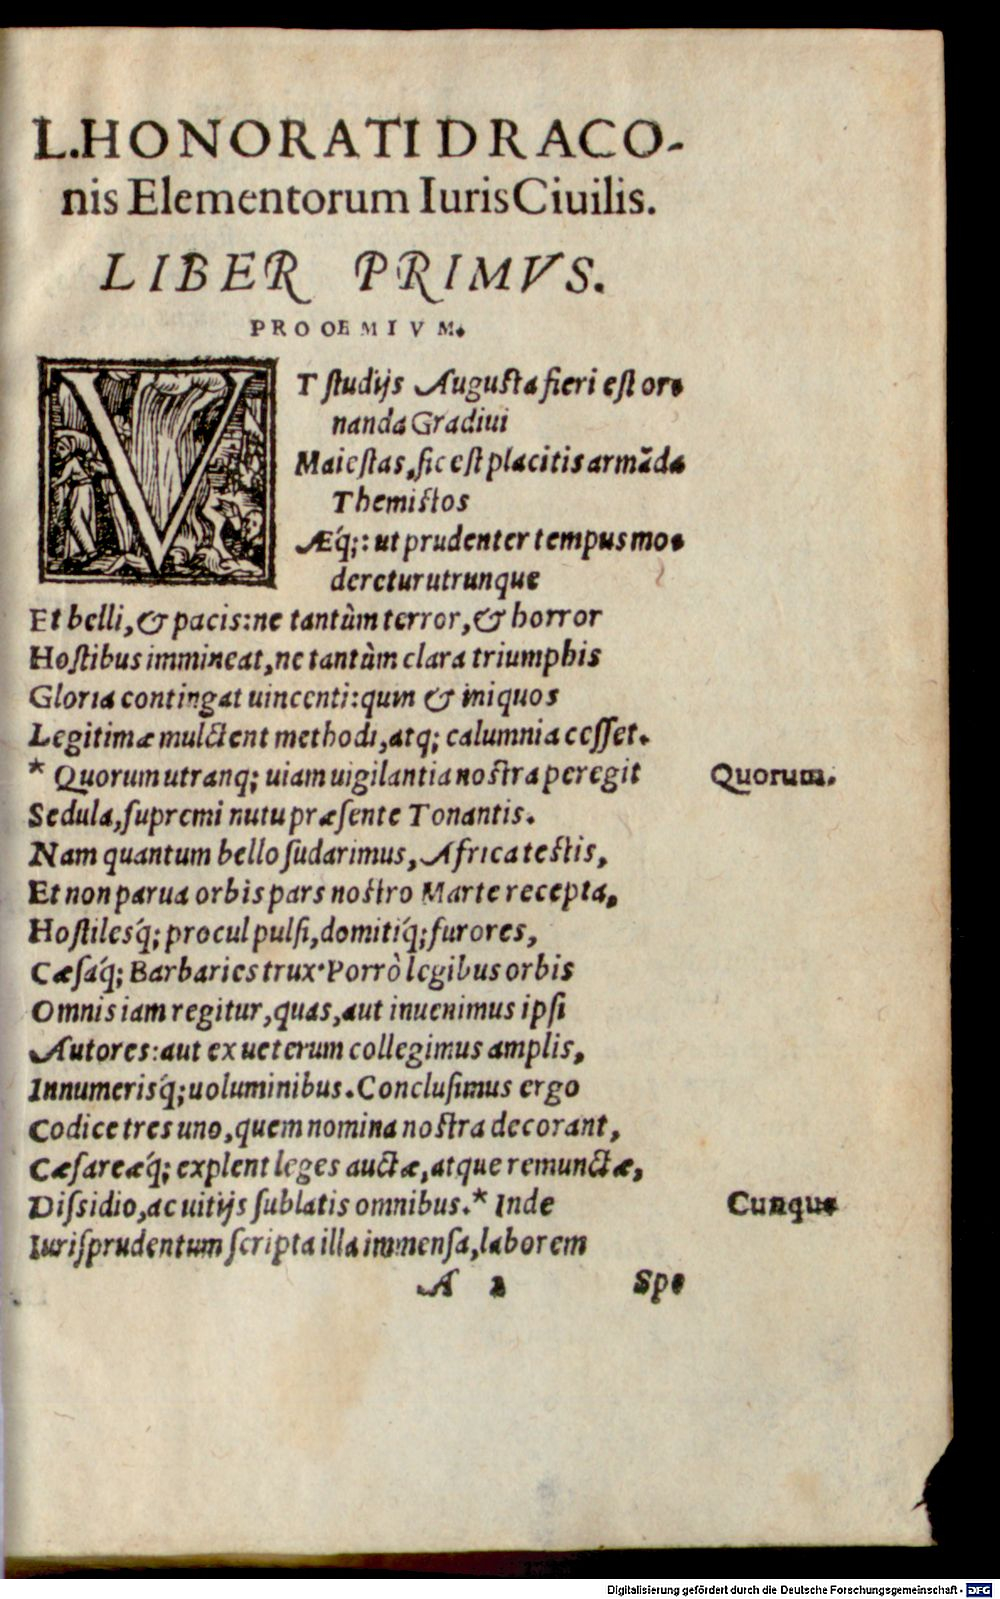 L.HONORATI DRACO-
nis Elementorum Iuris Ciuilis.
LIBER PRIMVS.
PROOEMIVM.
VT ſtudijs Auguſta fieri eſt or-
nanda Gradiui
Maieſtas, ſic eſt placitis armãda
Themiſtos
Æq́;: ut prudenter tempus mo-
deretur utrunque
Et belli, & pacis: ne tantùm terror, & horror
Hoſtibus immineat, ne tantùm clara triumphis
Gloria contingat uincenti: quin & iniquos
Legitimæ mulctent methodi, atq; calumnia ceſſet.
* Quorum utranq; uiam uigilantia noſtra peregit
Quorum.
Sedula, ſupremi nutu præſente Tonantis.
Nam quantum bello ſudarimus, Africa teſtis,
Et non parua orbis pars noſtro Marte recepta,
Hoſtilesq́; procul pulſi, domitiq́; furores,
Cæſaq́; Barbaries trux. Porrò legibus orbis
Omnis iam regitur, quas, aut inuenimus ipſi
Autores: aut ex ueterum collegimus amplis,
Innumerisq́; uoluminibus. Concluſimus ergo
Codice tres uno, quem nomina noſtra decorant,
Cæſareæq́; explent leges auctæ, atque remunctæ,
Diſsidio, ac uitijs ſublatis omnibus.* Inde
Cunque
Iuriſprudentum ſcripta illa immenſa, laborem
A 2
Spe
Digitalisierung gefördert durch die Deutsche Forschungsgemeinschaft - DFG